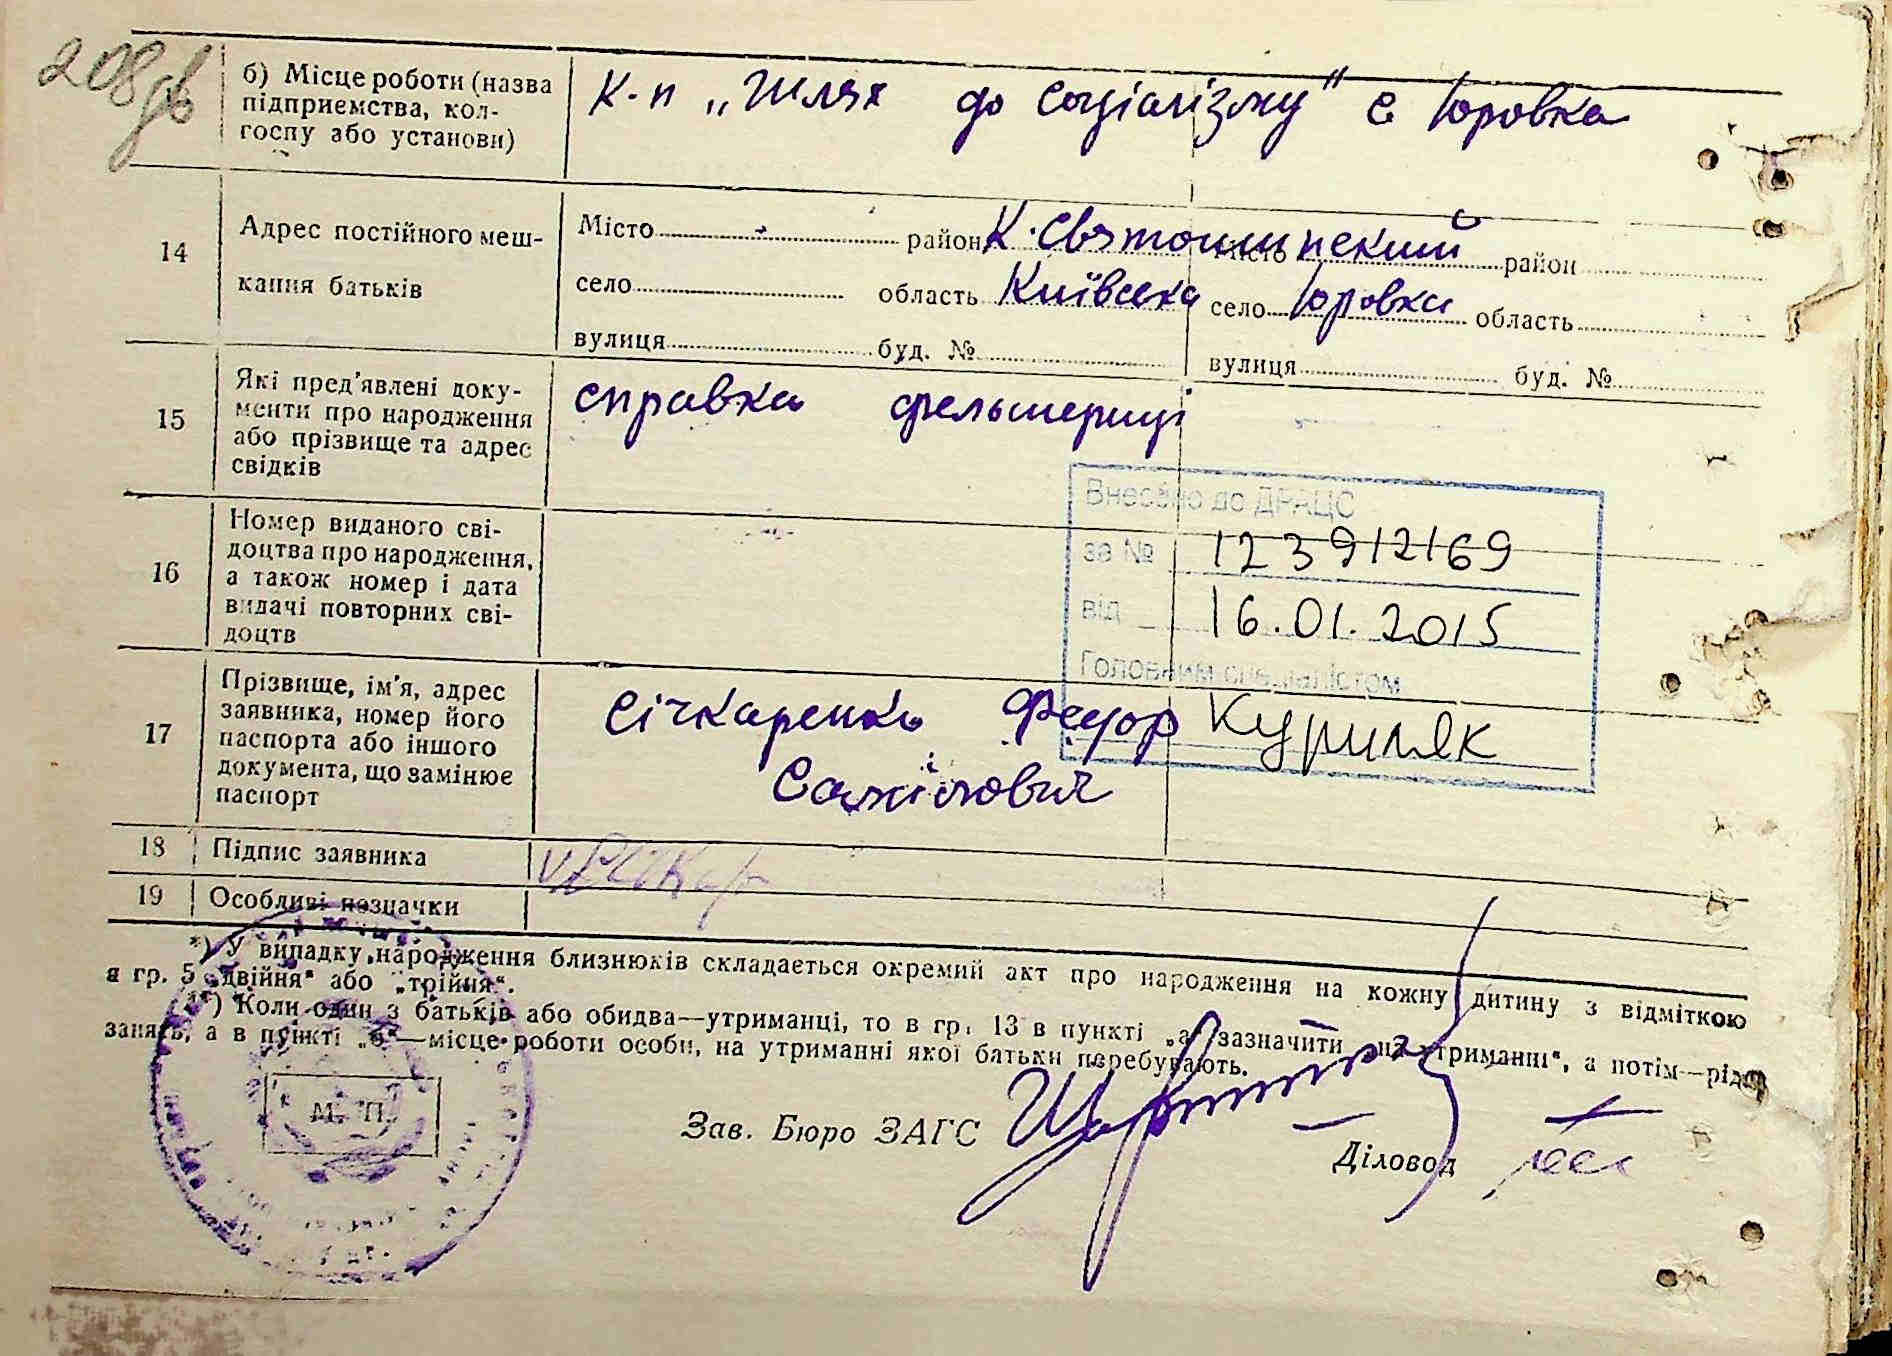 208 дв
б) Місце роботи (назва підприємства, кол-госпу або установи)
К-п „Шлях до соціалізму" с Юровка
14
Адрес постійного меш-
кання батьків
Місто район К.Святошинский Місто район
село область Київська село Юровка область
вулиця буд. № вулиця буд. №
15
Які пред'явлені доку-
менти про народження
або прізвище та адрес
свідків
справка фельшериці
16
Номер виданого сві-
доцтва про народження,
а також номер і дата
видачі повторних сві-
доцтв
Внесено до ДРАЦС
за № 123912169
від 16.01.2015
Головним спеціалістом
Куриляк
17
Прізвище, ім'я, адрес
заявника, номер його
паспорта або іншого
документа, що замінює
паспорт
Січкаренко Федор
Самійлович
18
Підпис заявника
19
Особливі позначки
*) У випадку народження близнюків складається окремий акт про народження на кожну дитину з відміткою
в гр. 5 „двійня" або „трійня".
**) Коли один з батьків або обидва—утриманці, то в гр. 13 в пункті „а" зазначити „на утриманні", а потім—рід
занять, а в пункті „б"—місце роботи особи, на утриманні якої батьки перебувають.
М. П.
Зав. Бюро ЗАГС
Діловод